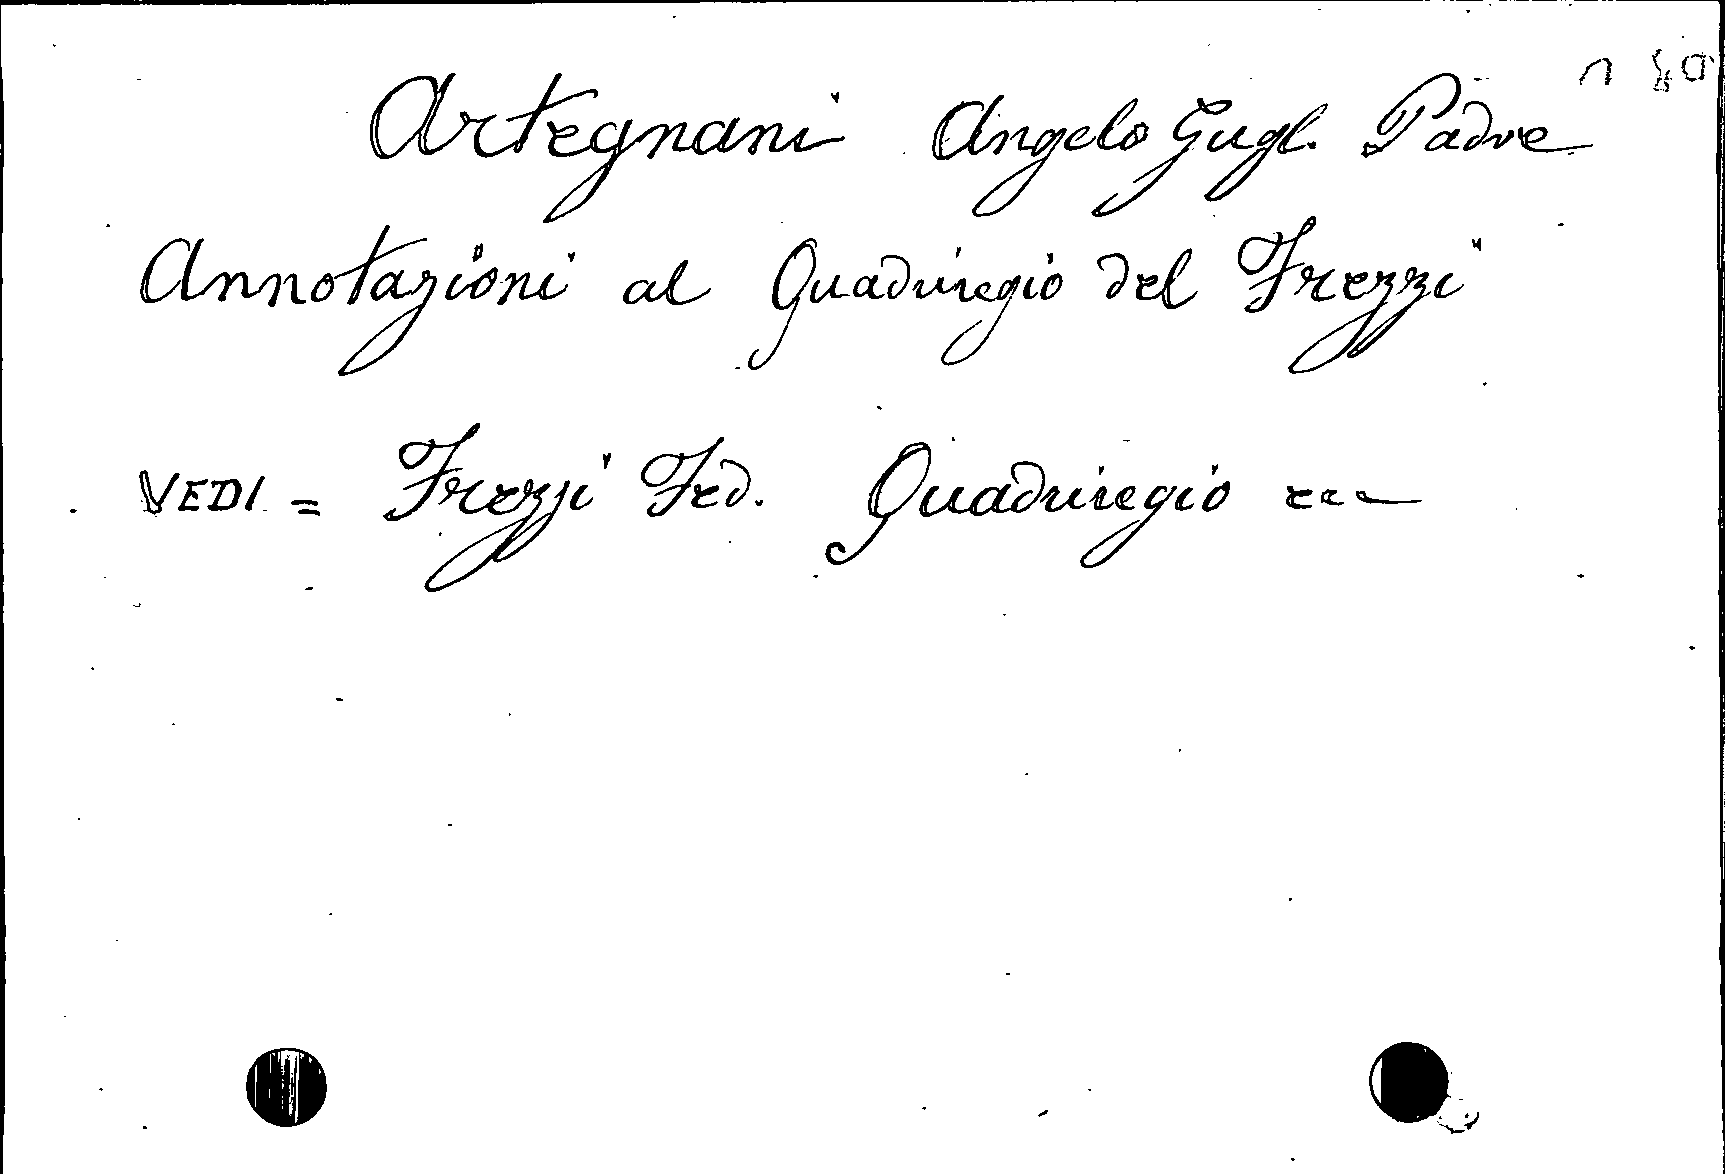 Artegnani Angelo Gugl. Padre
Annotazioni al Quadriregio del Frezzi
VEDI = Frezzi Fed. Quadriregio ecc